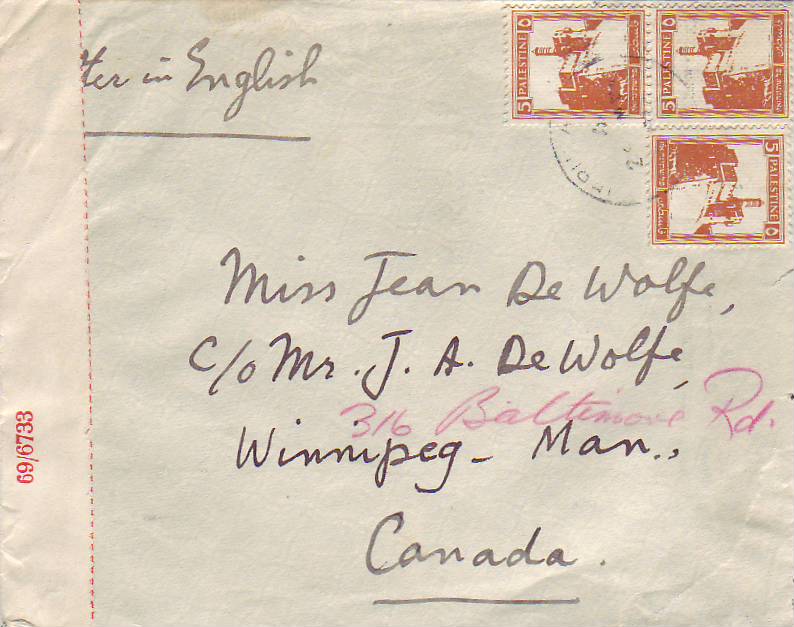 ter in English
5 PALESTINE ٥
5 PALESTINE ٥
5 PALESTINE ٥
Miss Jean De Wolfe,
c/o Mr. J. A. DeWolfe,
316 Baltimore Rd.
Winnipeg - Man.,
Canada.
69/6733